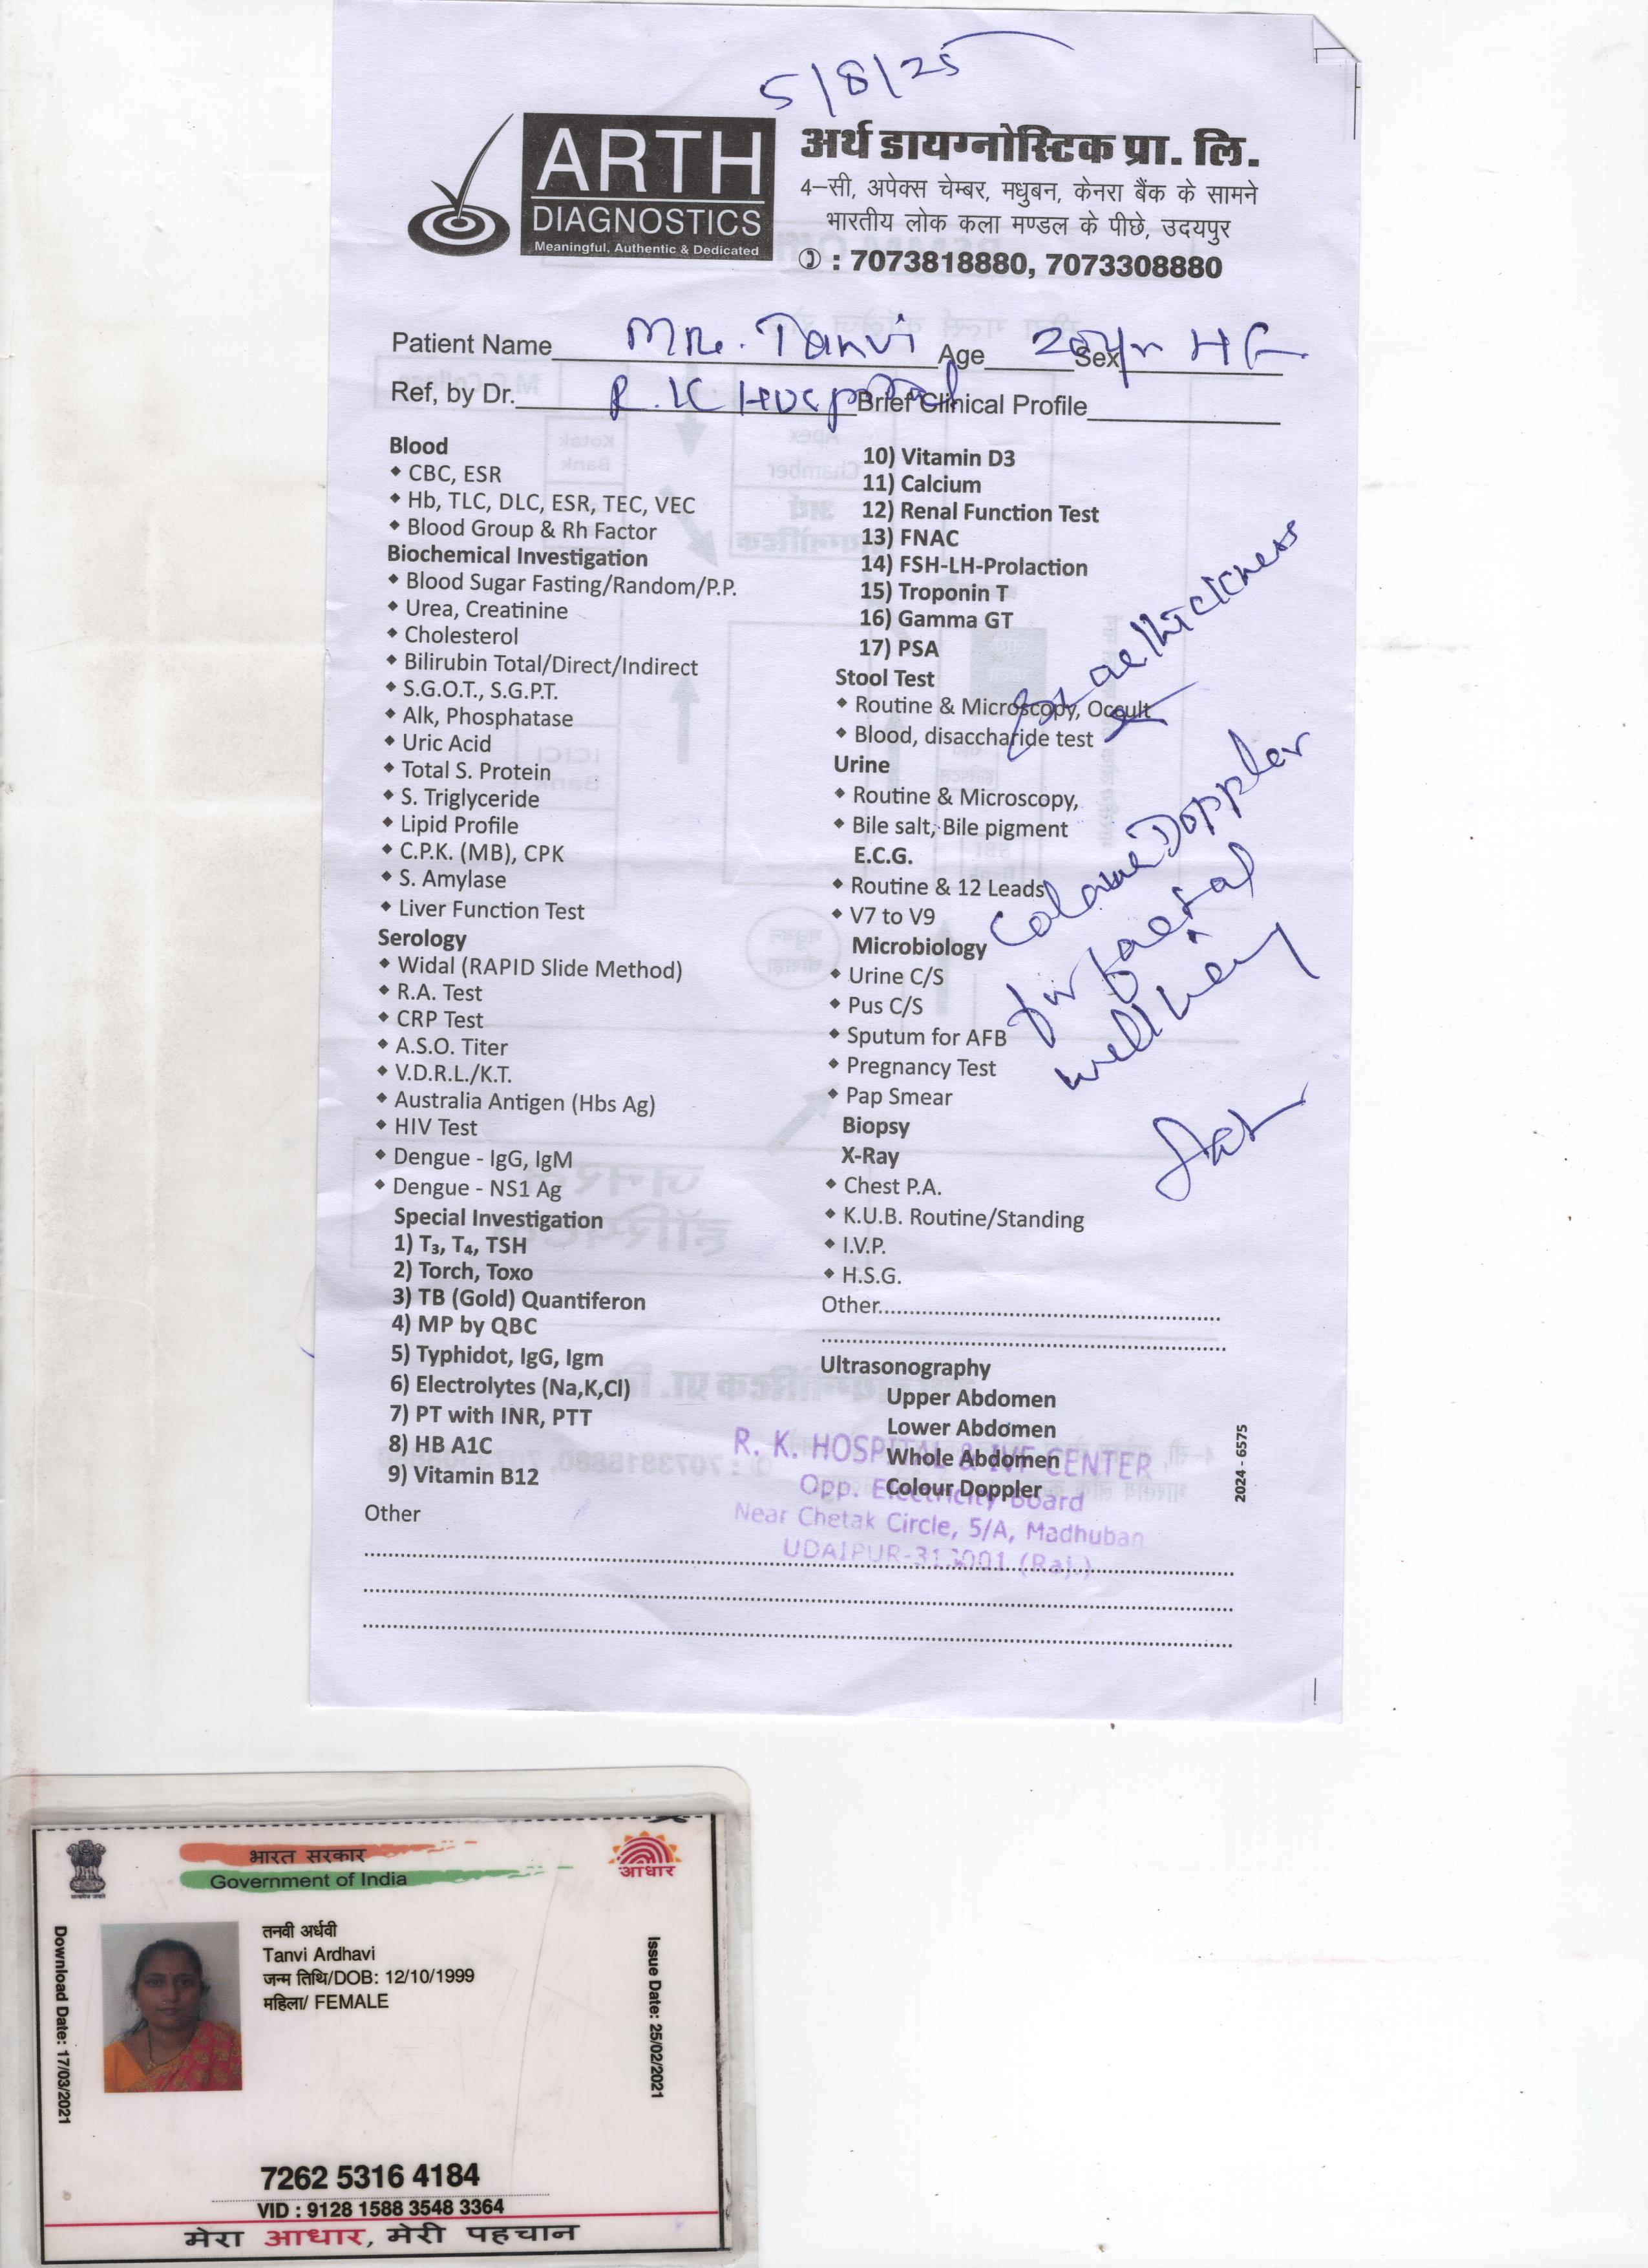 5/8/25
ARTH
DIAGNOSTICS
Meaningful, Authentic & Dedicated
अर्थ डायग्नोस्टिक प्रा. लि.
4–सी, अपेक्स चेम्बर, मधुबन, केनरा बैंक के सामने
भारतीय लोक कला मण्डल के पीछे, उदयपुर
✆ : 7073818880, 7073308880
Patient Name Tanvi Age Sex
Ref, by Dr. R.K Hospital Brief Clinical Profile
Blood
◆ CBC, ESR
◆ Hb, TLC, DLC, ESR, TEC, VEC
◆ Blood Group & Rh Factor
Biochemical Investigation
◆ Blood Sugar Fasting/Random/P.P.
◆ Urea, Creatinine
◆ Cholesterol
◆ Bilirubin Total/Direct/Indirect
◆ S.G.O.T., S.G.P.T.
◆ Alk, Phosphatase
◆ Uric Acid
◆ Total S. Protein
◆ S. Triglyceride
◆ Lipid Profile
◆ C.P.K. (MB), CPK
◆ S. Amylase
◆ Liver Function Test
Serology
◆ Widal (RAPID Slide Method)
◆ R.A. Test
◆ CRP Test
◆ A.S.O. Titer
◆ V.D.R.L./K.T.
◆ Australia Antigen (Hbs Ag)
◆ HIV Test
◆ Dengue - IgG, IgM
◆ Dengue - NS1 Ag
Special Investigation
1) T₃, T₄, TSH
2) Torch, Toxo
3) TB (Gold) Quantiferon
4) MP by QBC
5) Typhidot, IgG, Igm
6) Electrolytes (Na,K,Cl)
7) PT with INR, PTT
8) HB A1C
9) Vitamin B12
Other
10) Vitamin D3
11) Calcium
12) Renal Function Test
13) FNAC
14) FSH-LH-Prolaction
15) Troponin T
16) Gamma GT
17) PSA
Stool Test
◆ Routine & Microscopy, Occult
◆ Blood, disaccharide test
Urine
◆ Routine & Microscopy,
◆ Bile salt, Bile pigment
E.C.G.
◆ Routine & 12 Leads
◆ V7 to V9
Microbiology
◆ Urine C/S
◆ Pus C/S
◆ Sputum for AFB
◆ Pregnancy Test
◆ Pap Smear
Biopsy
X-Ray
◆ Chest P.A.
◆ K.U.B. Routine/Standing
◆ I.V.P.
◆ H.S.G.
Other
Ultrasonography
Upper Abdomen
Lower Abdomen
Whole Abdomen
Colour Doppler
Doppler
for faetal
well being
R. K. HOSPITAL & IVF CENTER
Opp. Electricity Board
Near Chetak Circle, 5/A, Madhuban
UDAIPUR-313001 (Raj.)
2024 - 6575
भारत सरकार
Government of India
आधार
तनवी अर्धवी
Tanvi Ardhavi
जन्म तिथि/DOB: 12/10/1999
महिला/ FEMALE
Download Date: 17/03/2021
Issue Date: 25/02/2021
7262 5316 4184
VID : 9128 1588 3548 3364
मेरा आधार, मेरी पहचान